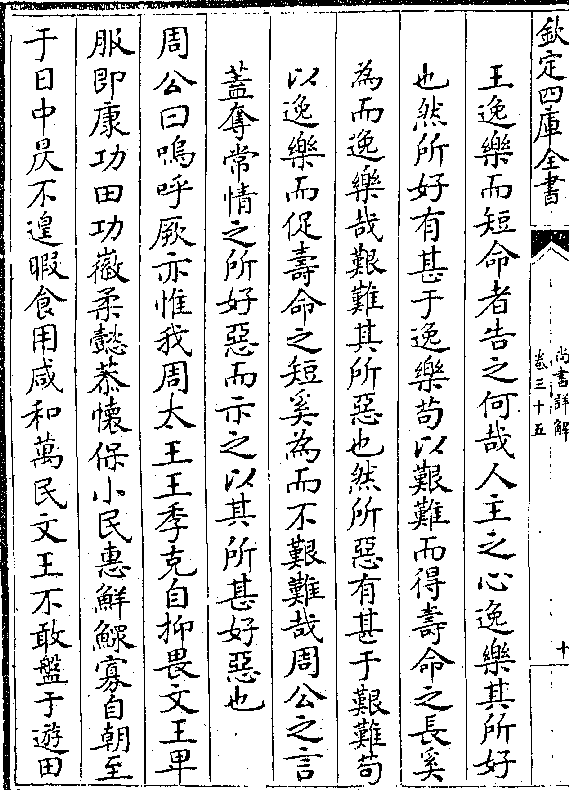 欽定四庫全書
尚書詳解
卷三十五
十
王逸樂而短命者告之何哉人主之心逸樂其所好
也然所好有甚于逸樂苟以艱難而得壽命之長奚
為而逸樂哉艱難其所惡也然所惡有甚于艱難苟
以逸樂而促壽命之短奚為而不艱難哉周公之言
蓋奪常情之所好惡而示之以其所甚好惡也
周公曰嗚呼厥亦惟我周太王王季克自抑畏文王卑
服即康功田功徽柔懿恭懷保小民惠鮮鰥寡自朝至
于日中昃不遑暇食用咸和萬民文王不敢盤于遊田